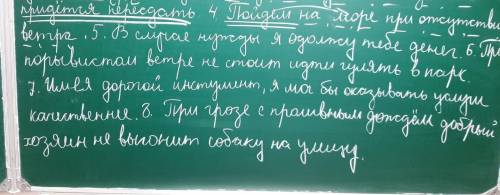 придётся пересдать 4. Пойдём на море при отсутствии
ветра. 5. В случае нужды я одолжу тебе денег. 6. При
порывистом ветре не стоит идти гулять в парк.
7. Имея дорогой инстумент, я мог бы оказывать услуги
качественнее. 8. При грозе с проливным дождём добрый
хозяин не выгонит собаку на улицу.